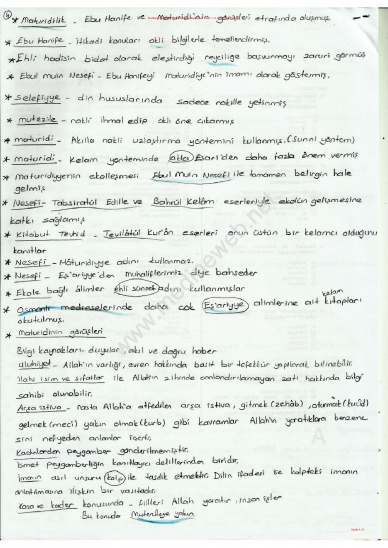 * Maturidilik. Ebu Hanife ve Maturidi'nin görüşleri etrafında oluşmuş.
* Ebu Hanife - İtikadi konuları akli bilgilerle temellendirmiş.
* Ehli hadisin bidat olarak eleştirdiği reyciliğe başvurmayı zaruri görmüş
* Ebul muin Nesefi - Ebu Hanifeyi Maturidiye'nin imamı olarak göstermiş.
* Selefiyye - din hususlarında sadece nakille yetinmiş
* mutezile - nakli ihmal edip aklı öne çıkarmış
* maturidi - Akılla nakli uzlaştırma yöntemini kullanmış. (Sünni yöntem)
* maturidi - Kelam yönteminde akla Eşari'den daha fazla önem vermiş
* Maturidiyyenin ekolleşmesi Ebul Muin Nesefi ile tamamen belirgin hale
gelmiş
* Nesefi - Tabsıratül Edille ve Bahrül Kelâm eserleriyle ekolün gelişmesine
katkı sağlamış
* Kitabut Tevhid - Tevilâtül Kur'ân eserleri onun üstün bir kelamcı olduğunu
kanıtlar
* Nesefi - Mâturidiyye adını kullanmaz.
* Nesefi - Eş'ariyye'den muhaliflerimiz diye bahseder
* Ekole bağlı âlimler ehli sünnet adını kullanmışlar
* Osmanlı medreselerinde daha çok Eş'ariyye alimlerine ait kelam kitapları
okutulmuş.
* Maturidinin görüşleri
Bilgi kaynakları: duyular, akıl ve doğru haber
uluhiyet - Allah'ın varlığı, evren hakkında basit bir tefekkür yapılarak bilinebilir.
İlahi isim ve sıfatlar ile Allah'ın zihinde canlandırılamayan zatı hakkında bilgi
sahibi olunabilir.
Arşa istiva - nasta Allah'a atfedilen arşa istiva, gitmek (zehâb), oturmak (kuûd)
gelmek (meci) yakın olmak (kurb) gibi kavramlar Allah'ın yaratıklara benzeme
sini nefyeden anlamlar içerir.
Kadınlardan peygamber gönderilmemiştir.
İsmet peygamberliğin kanıtlayıcı delillerinden biridir.
İmanın asıl unsuru kalp ile tasdik etmektir. Dilin ifadesi ise kalpteki imanın
anlatılmasına ilişkin bir vasıtadır.
Kaza ve kader konusunda - Fiilleri Allah yaratır, insan işler
Bu konuda Mutezileye yakın